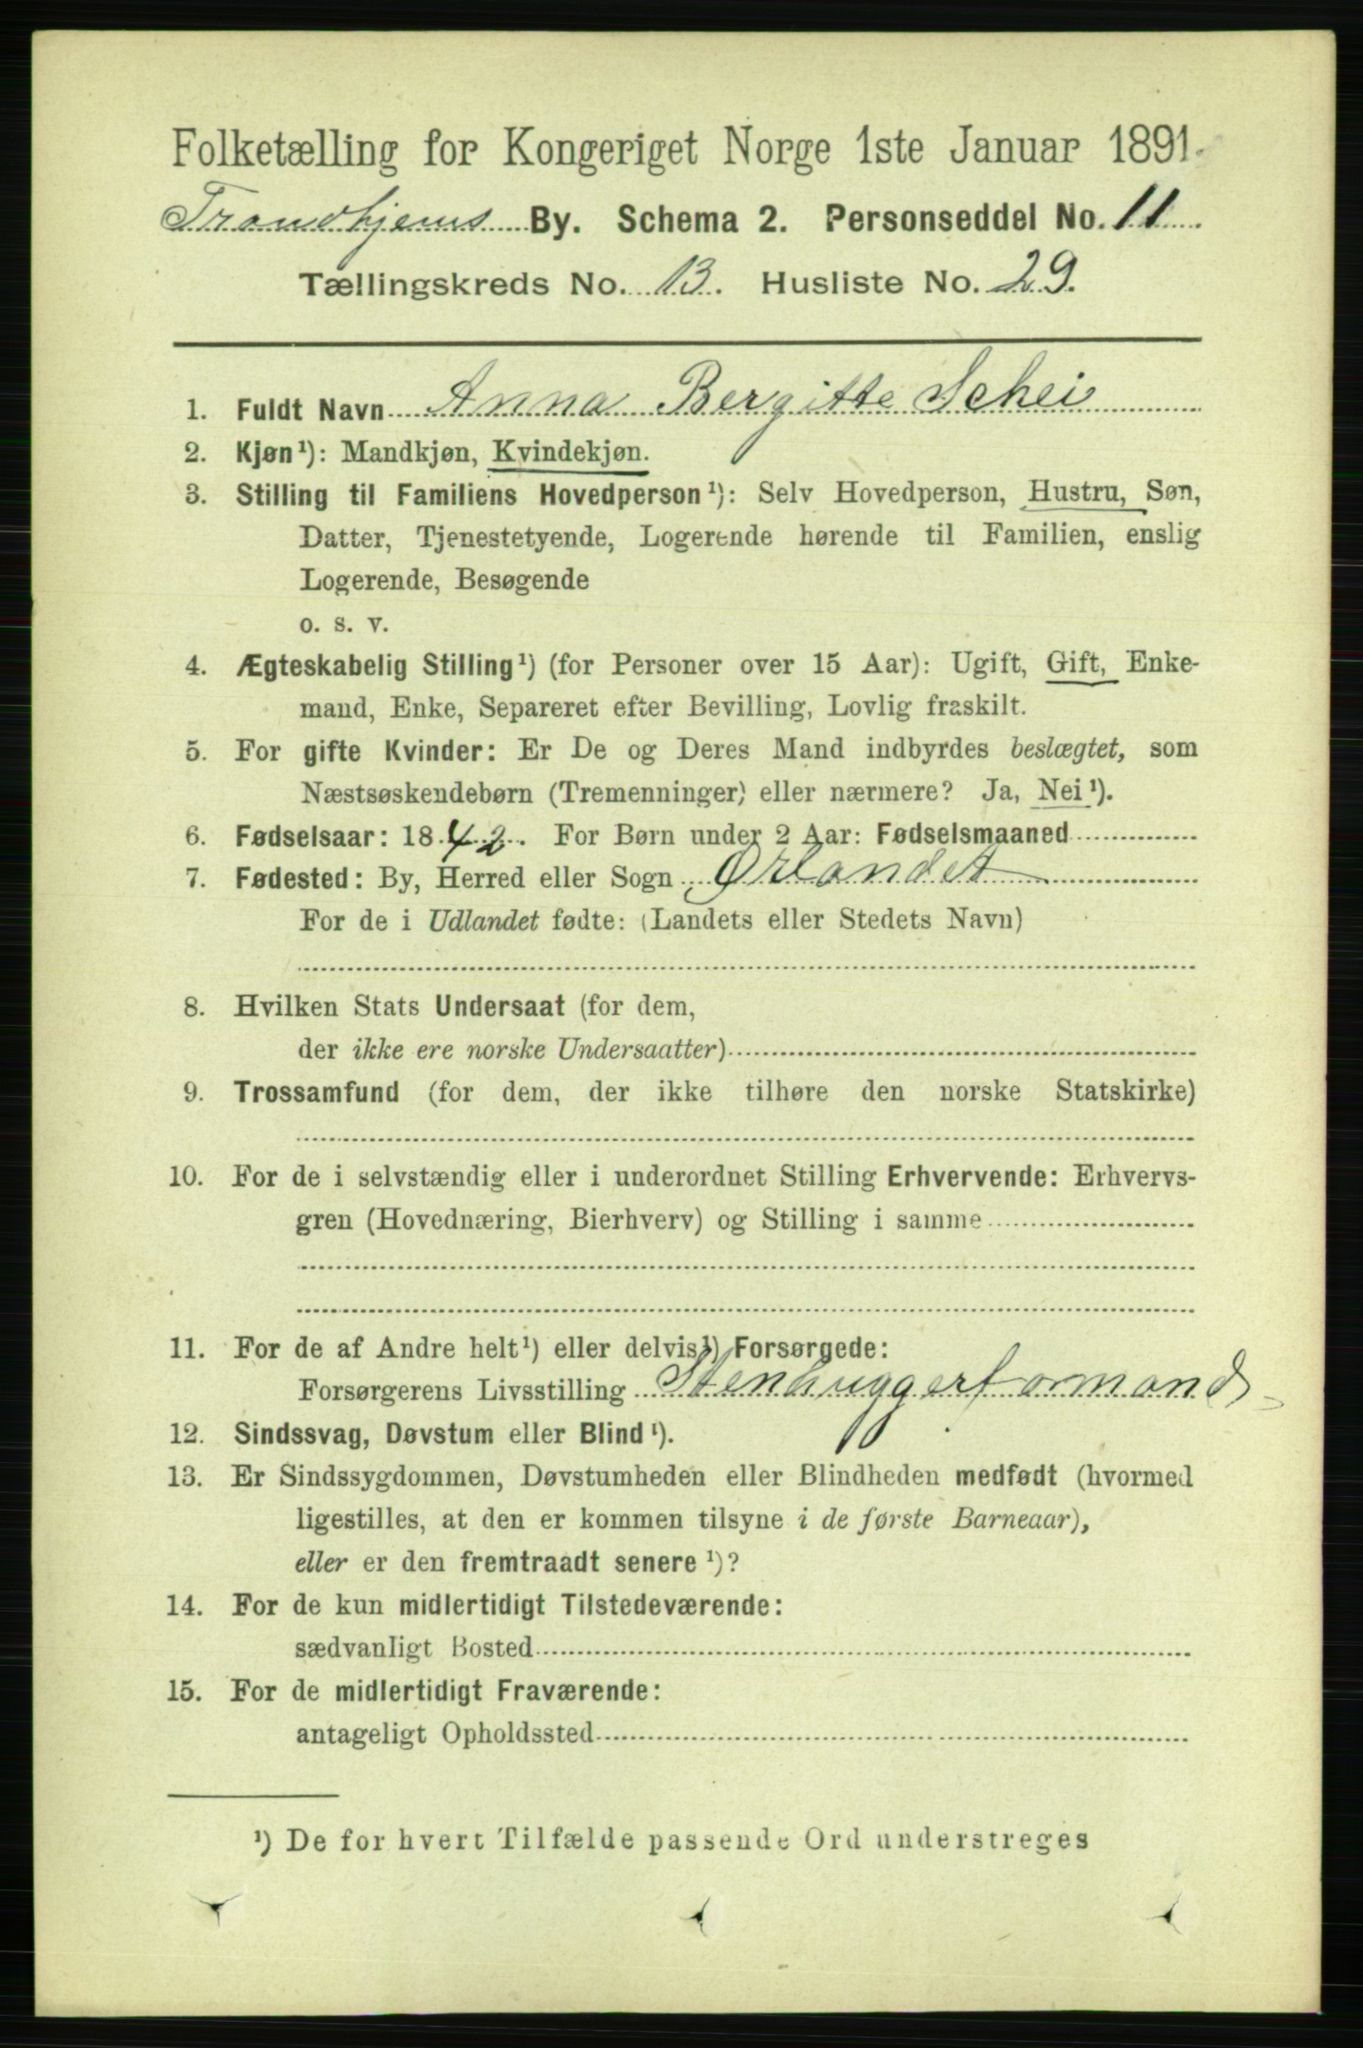 Folketælling for Kongeriget Norge 1ste Januar 1891.
Trondhjems By. Schema 2. Personseddel No. 11
Tællingskreds No. 13. Husliste No. 29.
1. Fuldt Navn Anna Bergitte Schei
2. Kjøn¹): Mandkjøn, Kvindekjøn.
3. Stilling til Familiens Hovedperson¹): Selv Hovedperson, Hustru, Søn,
Datter, Tjenestetyende, Logerende hørende til Familien, enslig
Logerende, Besøgende
o. s. v.
4. Ægteskabelig Stilling¹) (for Personer over 15 Aar): Ugift, Gift, Enke-
mand, Enke, Separeret efter Bevilling, Lovlig fraskilt.
5. For gifte Kvinder: Er De og Deres Mand indbyrdes beslægtet, som
Næstsøskendebørn (Tremenninger) eller nærmere? Ja, Nei¹).
6. Fødselsaar: 1842. For Børn under 2 Aar: Fødselsmaaned
7. Fødested: By, Herred eller Sogn Ørlandet
For de i Udlandet fødte: (Landets eller Stedets Navn)
8. Hvilken Stats Undersaat (for dem,
der ikke ere norske Undersaatter)
9. Trossamfund (for dem, der ikke tilhøre den norske Statskirke)
10. For de i selvstændig eller i underordnet Stilling Erhvervende: Erhvervs-
gren (Hovednæring, Bierhverv) og Stilling i samme
11. For de af Andre helt¹) eller delvis¹) Forsørgede:
Forsørgerens Livsstilling Stenhuggerformand
12. Sindssvag, Døvstum eller Blind¹).
13. Er Sindssygdommen, Døvstumheden eller Blindheden medfødt (hvormed
ligestilles, at den er kommen tilsyne i de første Barneaar),
eller er den fremtraadt senere¹)?
14. For de kun midlertidigt Tilstedeværende:
sædvanligt Bosted
15. For de midlertidigt Fraværende:
antageligt Opholdssted
¹) De for hvert Tilfælde passende Ord understreges